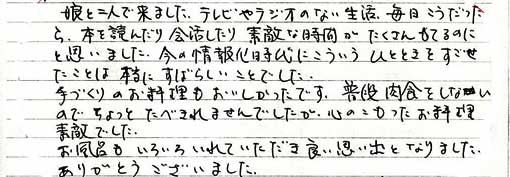 娘と二人で来ました。テレビやラジオのない生活、毎日こうだった
ら、本を読んだり会話したり素敵な時間がたくさんもてるのに
と思いました。今の情報化時代にこういうひとときをすごせ
たことは本当にすばらしいことでした。
手づくりのお料理もおいしかったです。普段肉食をしない
のでちょっとたべきれませんでしたが、心のこもったお料理
素敵でした。
お風呂もいろいろいれていただき良い思い出となりました。
ありがとうございました。